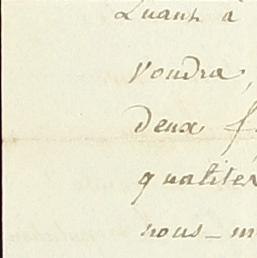 Quant à
voudra,
deux f
qualités
nous-m